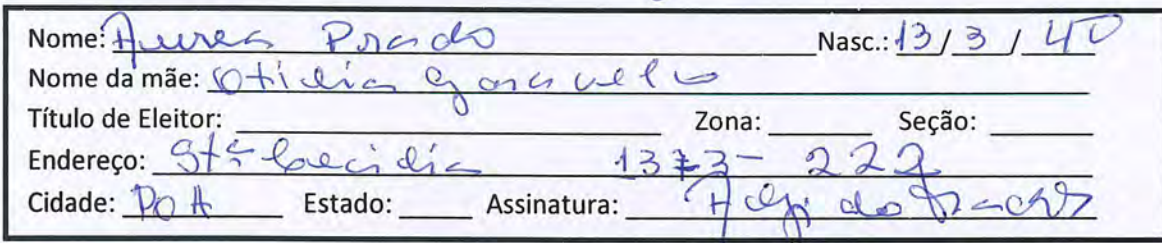 Nome: Aurea Prado Nasc.: 13/3/40
Nome da mãe: Otilia
Título de Eleitor: Zona: Seção:
Endereço: Stª Cecilia 1373-222
Cidade: POA Estado: Assinatura: